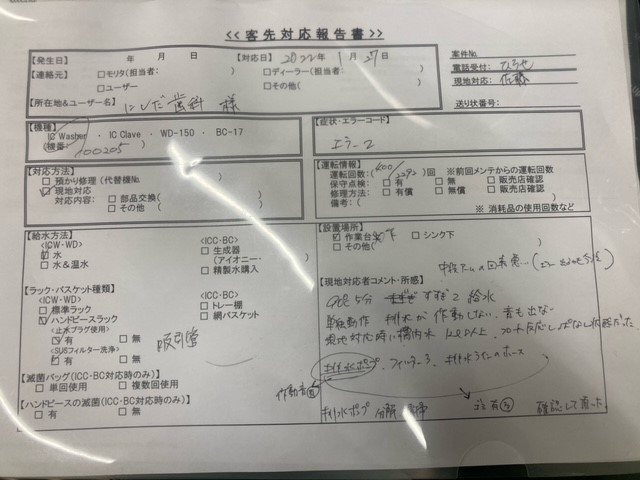 << 客先対応報告書 >>
【発生日】 年 月 日 【対応日】 2022年 1月 27日
案件No.
【連絡元】 □モリタ(担当者: ) □ディーラー(担当者: )
電話受付: ひろせ
□ユーザー □その他( )
現地対応: 佐藤
【所在地&ユーザー名】 にしだ歯科 様
送り状番号:
【機種】
IC Washer ・ IC Clave ・ WD-150 ・ BC-17
(機番: 00205 )
【症状・エラーコード】
エラー2
【対応方法】
□ 預かり修理 (代替機No. )
☑ 現地対応
対応内容: □ 部品交換( )
□ その他 ( )
【運転情報】
運転回数:( 400/2292 )回 ※前回メンテからの運転回数
保守点検: □ 有 □ 無 □ 販売店確認
修理方法: □ 有償 □ 無償 □ 販売店確認
備考:( )
※ 消耗品の使用回数など
【給水方法】
<ICW・WD>
☑ 水
□ 水&温水
<ICC・BC>
□ 生成器
(アイオニー・ )
□ 精製水購入
【設置場所】
☑ 作業台 下 □ シンク下
□ その他( )
【ラック・バスケット種類】
<ICW・WD>
□ 標準ラック
☑ ハンドピースラック
<止水プラグ使用>
☑ 有 □ 無
<SUSフィルター洗浄>
☑ 有 □ 無
<ICC・BC>
□ トレー棚
□ 網バスケット
吸引管
【滅菌バッグ(ICC・BC対応時のみ)】
□ 単回使用 □ 複数回使用
【ハンドピースの滅菌(ICC・BC対応時のみ)】
□ 有 □ 無
【現地対応者コメント・所感】
5分 すすぎ2 給水
単独動作 排水が作動しない、音も出ない
現地対応時に槽内水 12L以上、フロート 状態だった。
排水ポンプ、フィルター3、排水ラインのホース
作動音
排水ポンプ 分解 確認して直った。